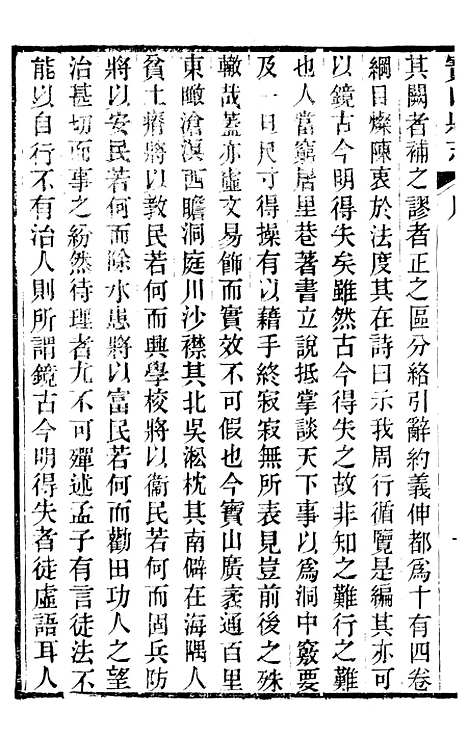 其闕者補之謬者正之區分絡引辭約義伸都爲十有四卷
綱目燦陳衷於法度其在詩曰示我周行循覽是編其亦可
以鏡古今明得失矣雖然古今得失之故非知之難行之難
也人當窮居里巷著書立說抵掌談天下事以爲洞中竅要
及一旦尺寸得操有以藉手終寂寂無所表見豈前後之殊
轍哉蓋亦虛文易飾而實效不可假也今寶山廣袤通百里
東瞰滄溟西瞻洞庭川沙襟其北吳淞枕其南僻在海隅人
貧土瘠將以敎民若何而興學校將以衛民若何而固兵防
將以安民若何而除水患將以富民若何而勸田功人之望
治甚切而事之紛然待理者尤不可殫述孟子有言徒法不
能以自行不有治人則所謂鏡古今明得失者徒虛語耳人